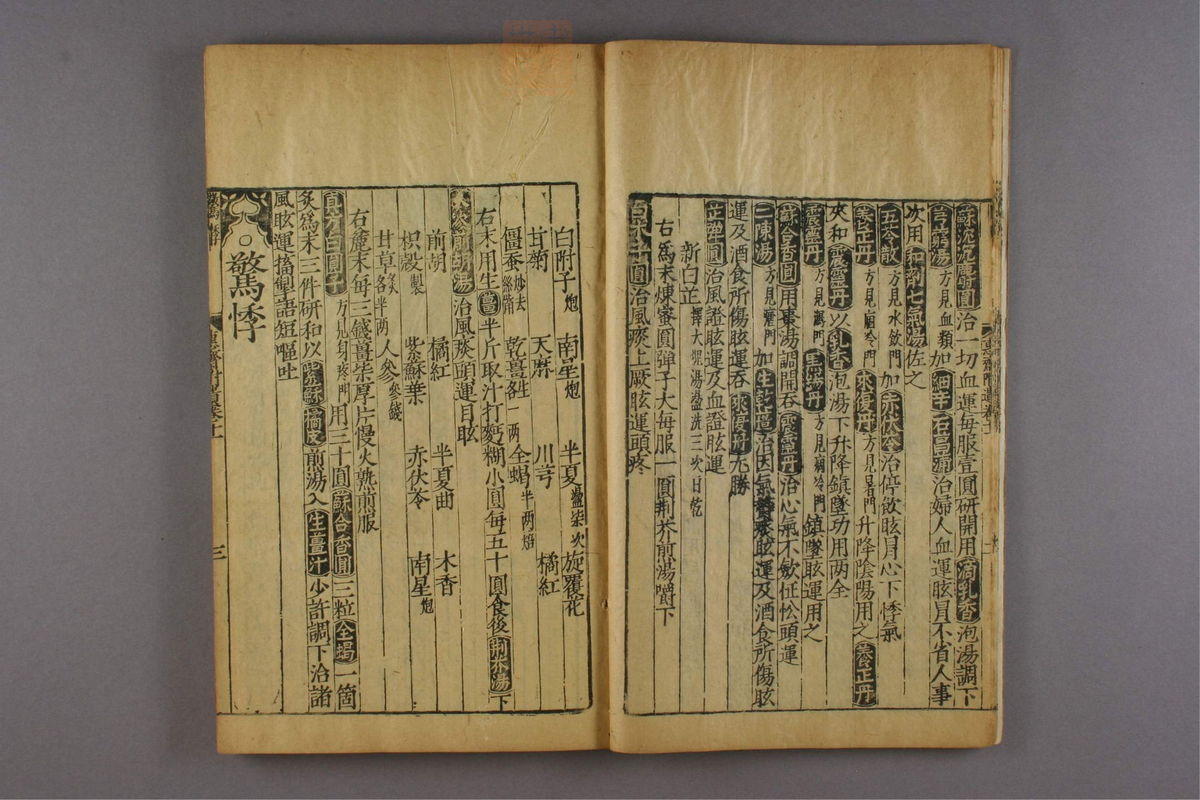 蘇沉沉麝圓治一切血運每服壹圓研開用滴乳香泡湯調下
芎藭湯方見血類加細辛石菖蒲治婦人血運眩冒不省人事
次用和劑七氣湯佐之
五苓散方見水飲門加赤伏苓治停飲眩冒心下悸氣
養正丹方見痼冷門來復丹方見暑門升降陰陽用之養正丹
夾和震靈丹以乳香泡湯下升降鎮墜功用两全
震靈丹方見瀉門黑錫丹方見痼冷門鎮墜眩運用之
蘇合香圓用棗湯調開吞震靈丹治心氣不斂怔忪頭運
二陳湯方見瘧門加生乾薑治因氣鬱痰眩運及酒食所傷眩
運及酒食所傷眩運吞來復丹尤勝
芷彈圓治風證眩運及血證眩運
新白芷擇大塊湯盪洗三次日乾
右爲末煉蜜圓彈子大每服一圓荆芥煎湯嚼下
白附子圓治風痰上厥眩運頭疼
白附子炮 南星炮 半夏 旋覆花
甘菊 天麻 川芎 橘紅
僵蚕炒去絲觜 乾薑生一两 全蝎半两焙
右末用生薑半斤取汁打麪糊小圓每五十圓食後荆芥湯下
前胡湯治風痰頭運目眩
前胡 橘紅 半夏曲 木香
枳殼製 紫蘇葉 赤伏苓 南星炮
甘草炙各半两 人參參錢
右麄末每三錢薑柒厚片慢火熟煎服
青州白圓子方見身疼門用三十圓蘇合香圓三粒全蝎一箇
炙爲末三件研和以紫蘇橘皮煎湯入生薑汁少許調下治諸
風眩運搐掣語短嘔吐
驚悸
三